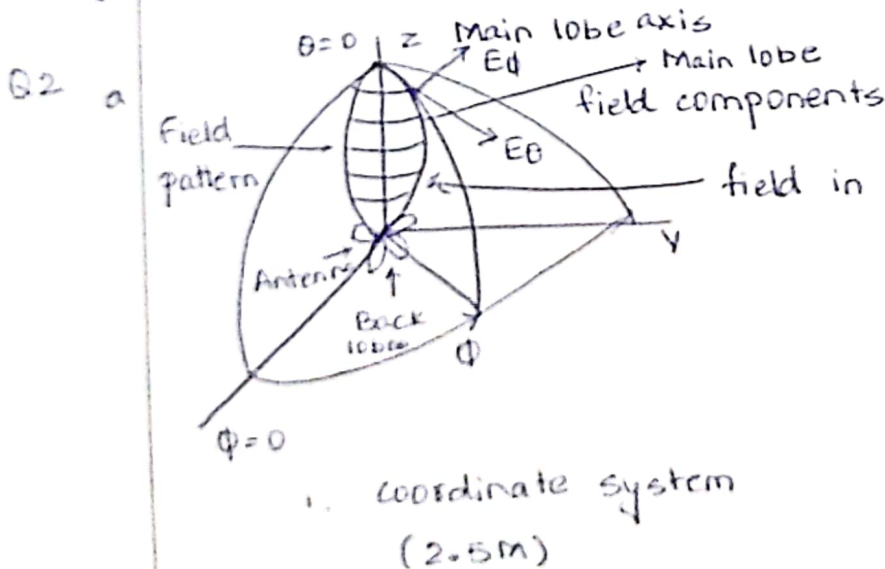 θ=0 z Main lobe axis
Eφ Main lobe
Q2 a field components
Field
pattern
Eθ
field in
Y
Antenna
Back
lobes
φ
φ=0
1. coordinate system
(2.5M)